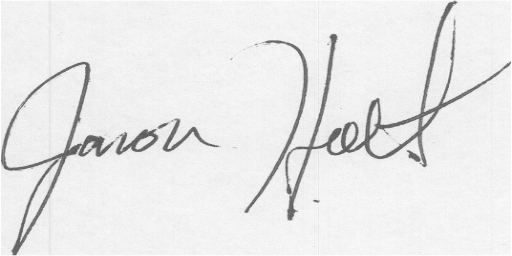 Jaron Holt